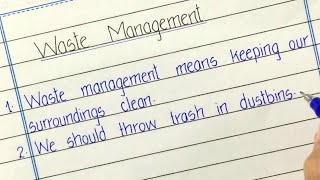 Waste Management
1. Waste management means keeping our
surroundings clean.
2. We should throw trash in dustbins.